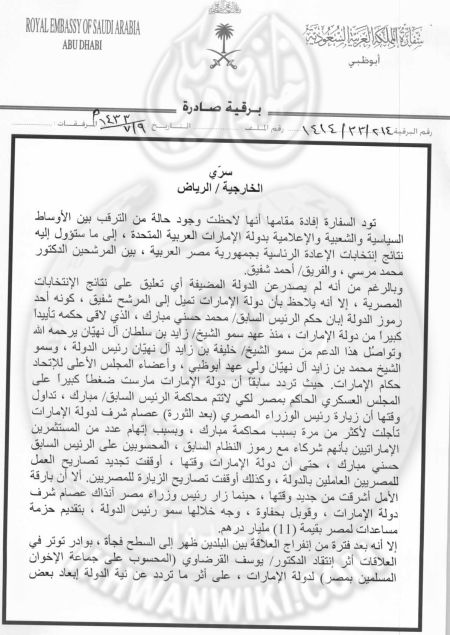 ROYAL EMBASSY OF SAUDI ARABIA
ABU DHABI
سفارة المملكة العربية السعودية
أبوظبي
برقية صادرة
رقم البرقية ١٤١٤/٣٣/٢١٤ رقم الملف التاريخ ١٤٣٣/٧/٩ المرفقات
سرّي
الخارجية / الرياض
تود السفارة إفادة مقامها أنها لاحظت وجود حالة من الترقب بين الأوساط
السياسية والشعبية والإعلامية بدولة الإمارات العربية المتحدة ، إلى ما ستؤول إليه
نتائج إنتخابات الإعادة الرئاسية بجمهورية مصر العربية ، بين المرشحين الدكتور
محمد مرسي ، والفريق/ أحمد شفيق.
وبالرغم من أنه لم يصدرعن الدولة المضيفة أي تعليق على نتائج الإنتخابات
المصرية ، إلا أنه يلاحظ بأن دولة الإمارات تميل إلى المرشح شفيق ، كونه أحد
رموز الدولة إبان حكم الرئيس السابق/ محمد حسني مبارك ، الذي لاقى حكمه تأييداً
كبيراً من دولة الإمارات ، منذ عهد سمو الشيخ/ زايد بن سلطان آل نهيّان يرحمه الله
وتواصُل هذا الدعم من سمو الشيخ/ خليفة بن زايد آل نهيّان رئيس الدولة ، وسمو
الشيخ محمد بن زايد آل نهيّان ولي عهد أبوظبي ، وأعضاء المجلس الأعلى للإتحاد
حكام الإمارات. حيث تردد سابقاً أن دولة الإمارات مارست ضغطاً كبيراً على
المجلس العسكري الحاكم بمصر لكي لاتتم محاكمة الرئيس السابق/ مبارك ، تداول
وقتها أن زيارة رئيس الوزراء المصري (بعد الثورة) عصام شرف لدولة الإمارات
تأجلت لأكثر من مرة بسبب محاكمة مبارك ، وبسبب إتهام عدد من المستثمرين
الإماراتيين بأنهم شركاء مع رموز النظام السابق ، المحسوبين على الرئيس السابق
حسني مبارك ، حتى أن دولة الإمارات وقتها ، أوقفت تجديد تصاريح العمل
للمصريين العاملين بالدولة ، وكذلك أوقفت تصاريح الزيارة للمصريين. ألا أن بارقة
الأمل أشرقت من جديد وقتها ، حينما زار رئيس وزراء مصر آنذاك عصام شرف
دولة الإمارات ، وقوبل بحفاوة ، وجه خلالها سمو رئيس الدولة ، بتقديم حزمة
مساعدات لمصر بقيمة (11) مليار درهم.
إلا أنه بعد فترة من إنفراج العلاقة بين البلدين ظهر إلى السطح فجأة ، بوادر توتر في
العلاقات أثر إنتقاد الدكتور/ يوسف القرضاوي (المحسوب على جماعة الإخوان
المسلمين بمصر) لدولة الإمارات ، على أثر ما تردد عن نية الدولة إبعاد بعض
IKHWANWIKI.COM